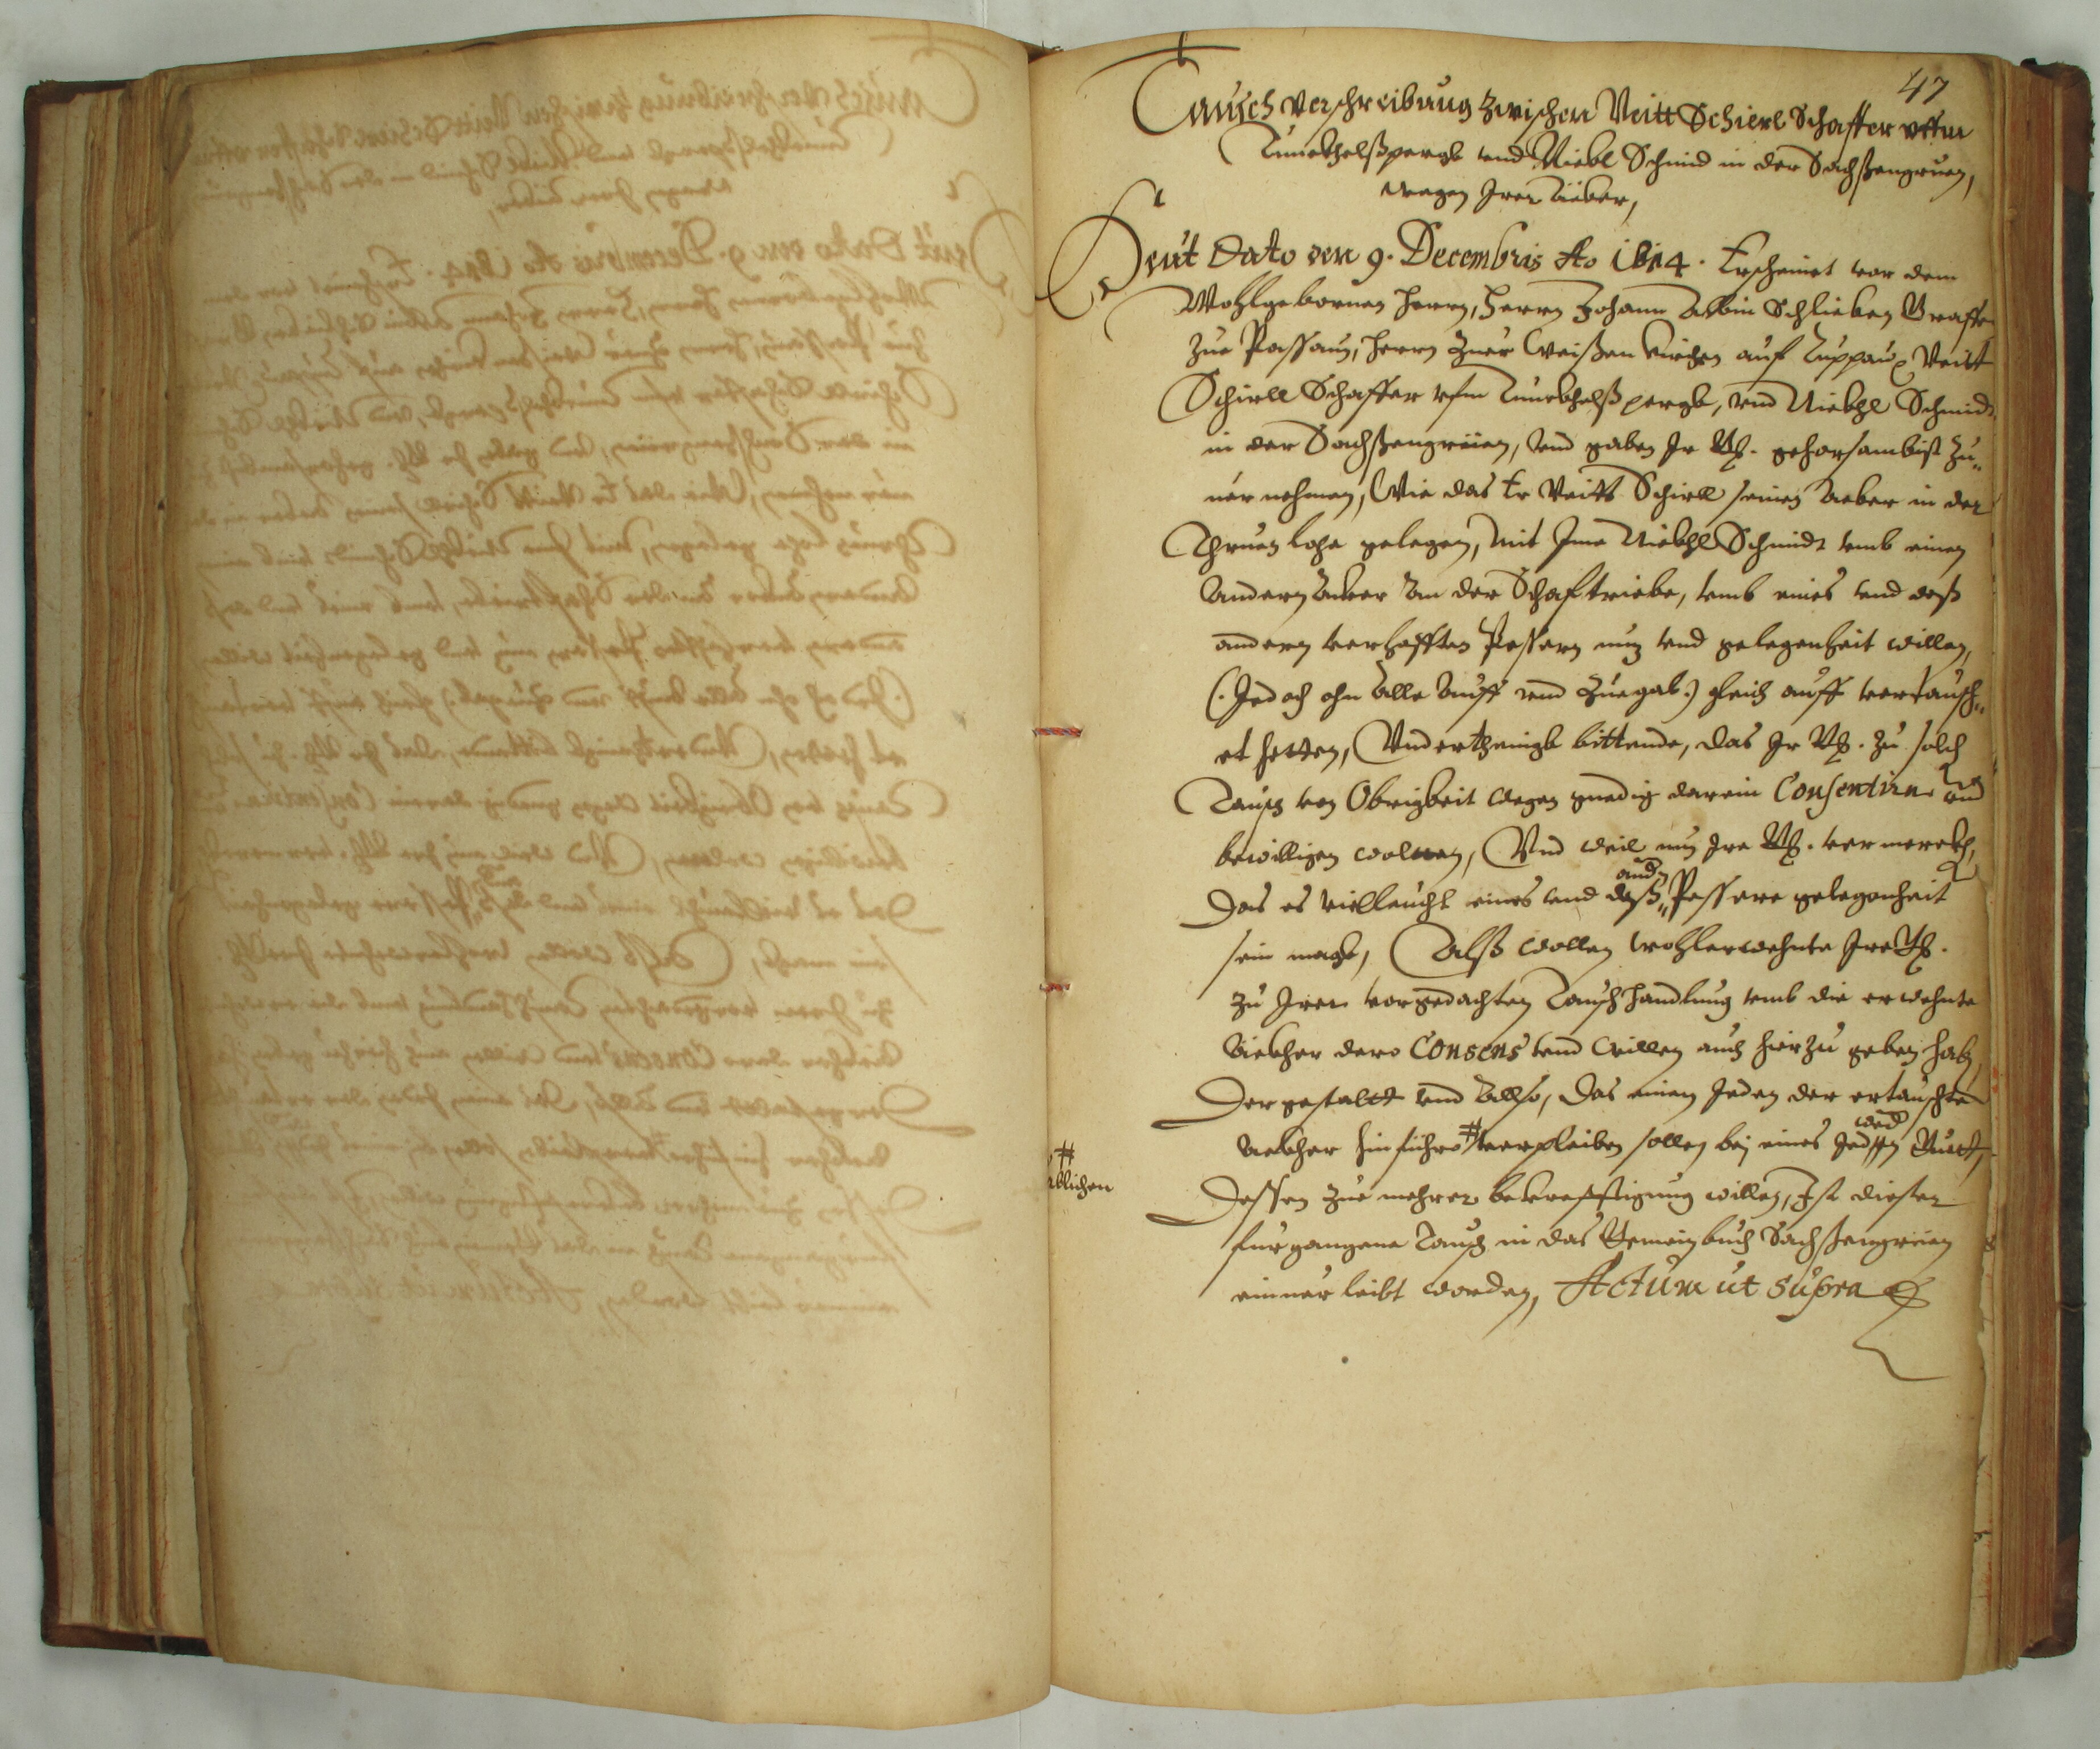 47
Tausch verschreibung zwischen Veitt Schierl Schaffer uffm
Tunckhelßpergk vnd Nickl Schmid in der Sachßengruen,
wegen Irer Äcker,
Heut Dato den 9. Decembris Ao 1614. Erscheinet vor dem
Wohlgebornen Herrn, Herrn Johann Albin Schlicken Graffen
zue Passaun, Herrn zuer Weißen Kirchen auf Luppau, Veitt
Schirll Schaffer vfm Tunckhelßpergk, vnd Nickhl Schmidt
in der Sachßengrüen, vnd gaben Ir Gn. gehorsambist zu„
uernehmen, Wie das Er Veitt Schirll seinen Acker in der
lohe gelegen, mit Ime Nickhl Schmidt vmb einen
Andern Acker An der Schaftriebe, vmb eines vnd deß
andern verhofften Pessern nuz vnd gelegenheit willen,
(. Jedoch ohn Alle Auff vnd Zuegab.) gleich auff vertausch„
et hetten, Vnderthenigk bittende, das Ir Gn. zu solch
Tausch von Obrigkeit wegen gnedig darein Consentirn vnd
bewilligen wolten, Vnd weil nun Ire Gn. vermerckh,
andn
Das es vielleucht eines vnd deß„ Pessere gelegenheit
sein magk, Alß wollen wohlerwehnte Ire Gn.
zu Irer vorgedachten Tauschhandlung vmb die erwehnte
Äckher dero Consens vnd Willen auch hierzu geben habn,
Dergestaldt vnd Allso, Das einen Jeden der ertauschte
wed
Ackher hinführo # verpleiben sollen bei eines Jeden Guett,
#
blichen
Dessen zue mehrer bekrefftigung willen, Ist dieser
fürgangene Tausch in das Gemein buch Sachßengrüen
einuerleibt worden, Actum ut supra